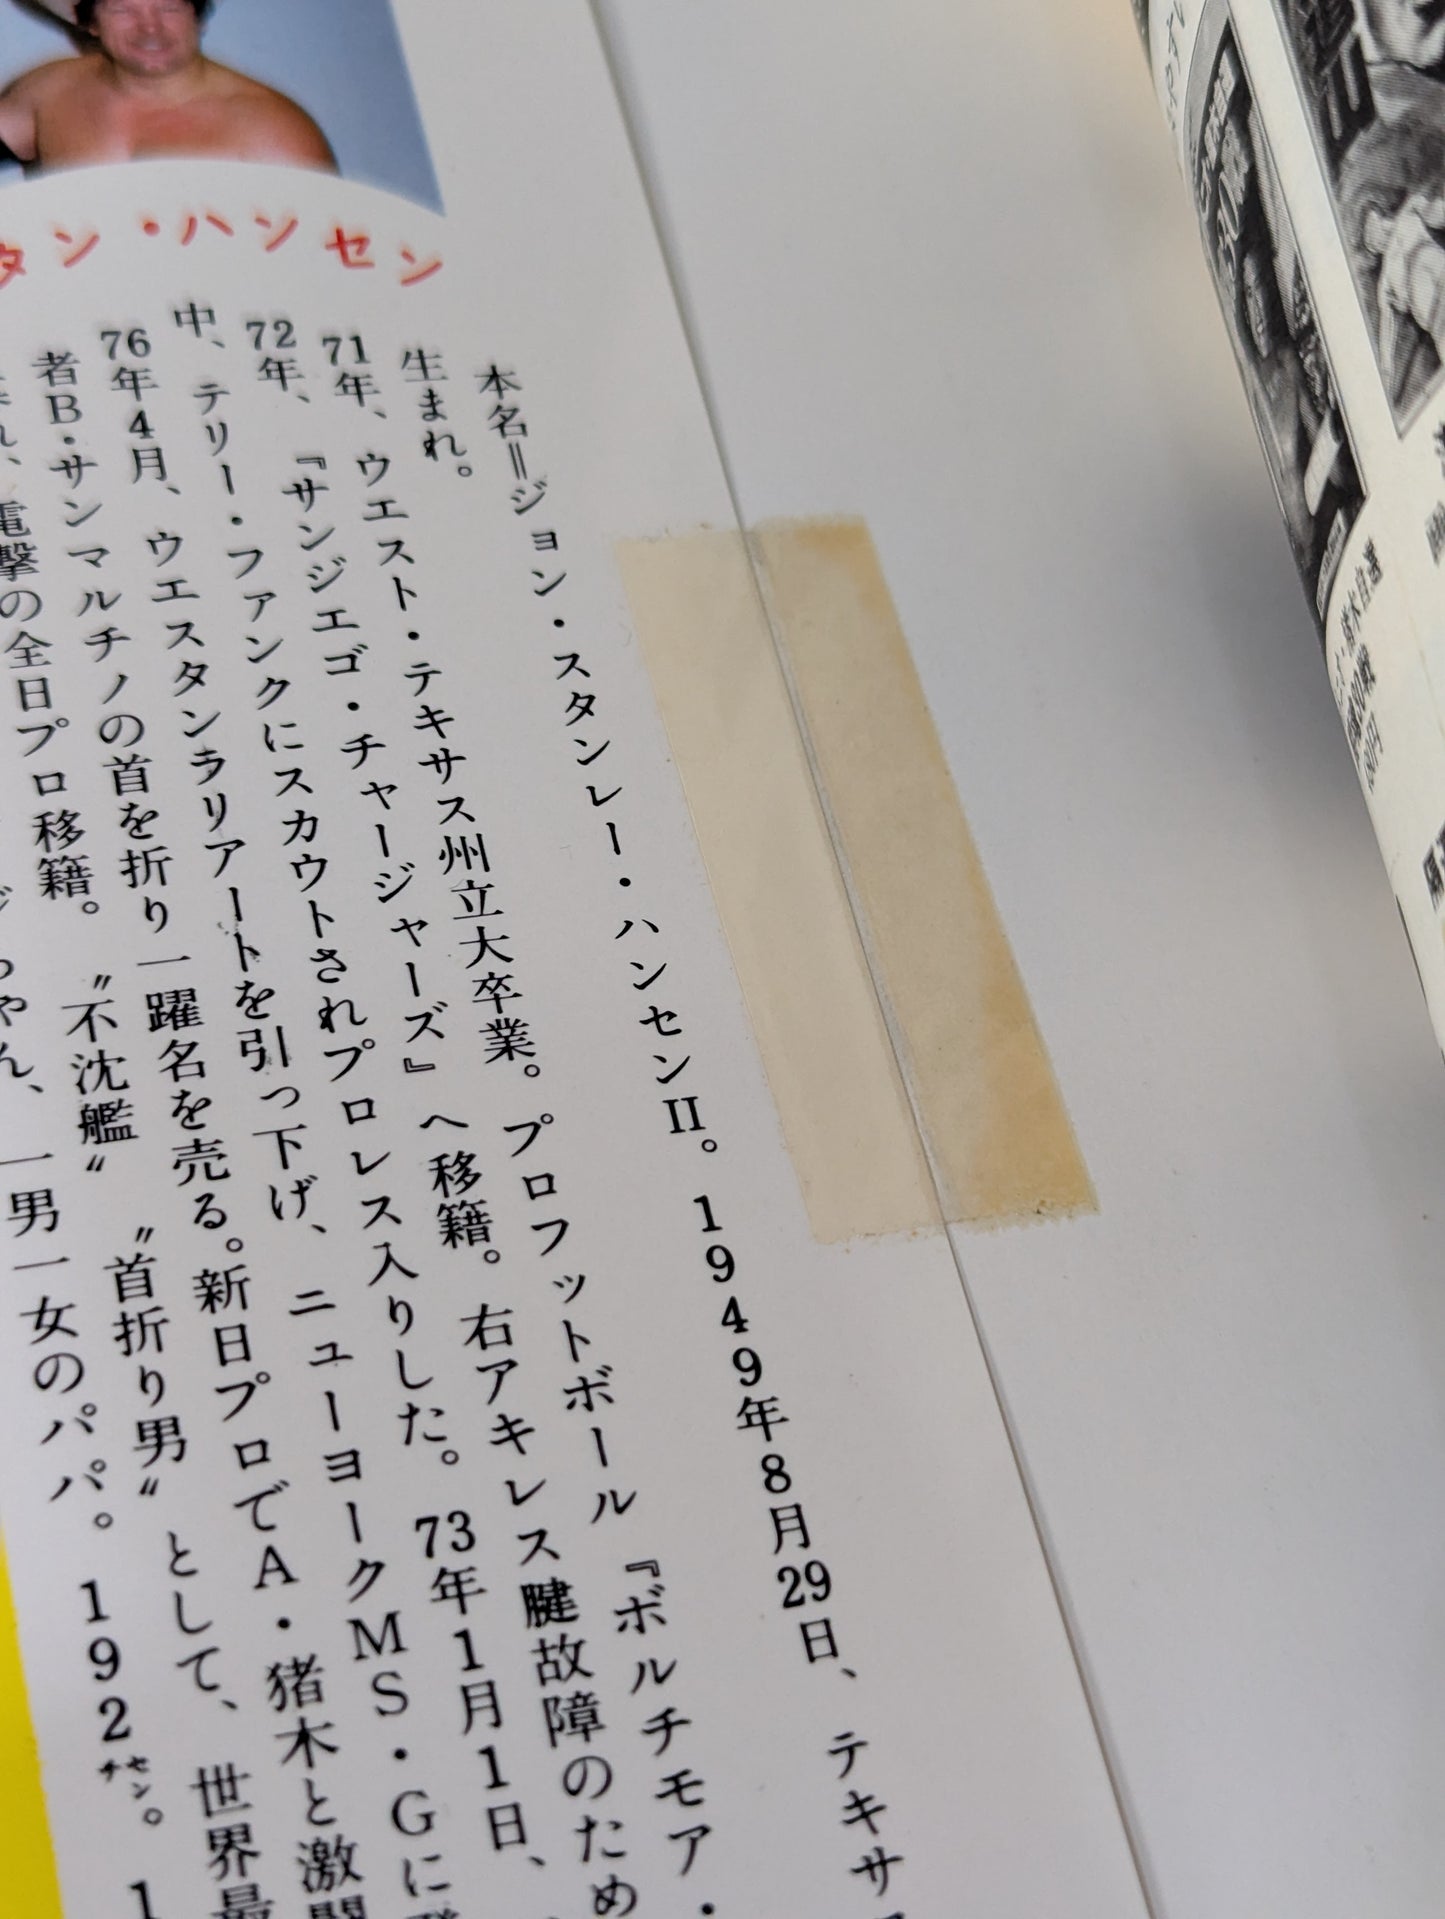 タン・ハンセン
本名＝ジョン・スタンレー・ハンセンⅡ。1949年8月29日、テキサ
生まれ。
71年、ウエスト・テキサス州立大卒業。プロフットボール『ボルチモア・
72年、『サンジエゴ・チャージャーズ』へ移籍。右アキレス腱故障のため
中、テリー・ファンクにスカウトされプロレス入りした。73年1月1日、
76年4月、ウエスタンラリアートを引っ下げ、ニューヨークMS・Gに
者B・サンマルチノの首を折り一躍名を売る。新日プロでA・猪木と激闘
電撃の全日プロ移籍。〝不沈艦〟〝首折り男〟として、世界最
ゃん、一男一女のパパ。192センチ。1